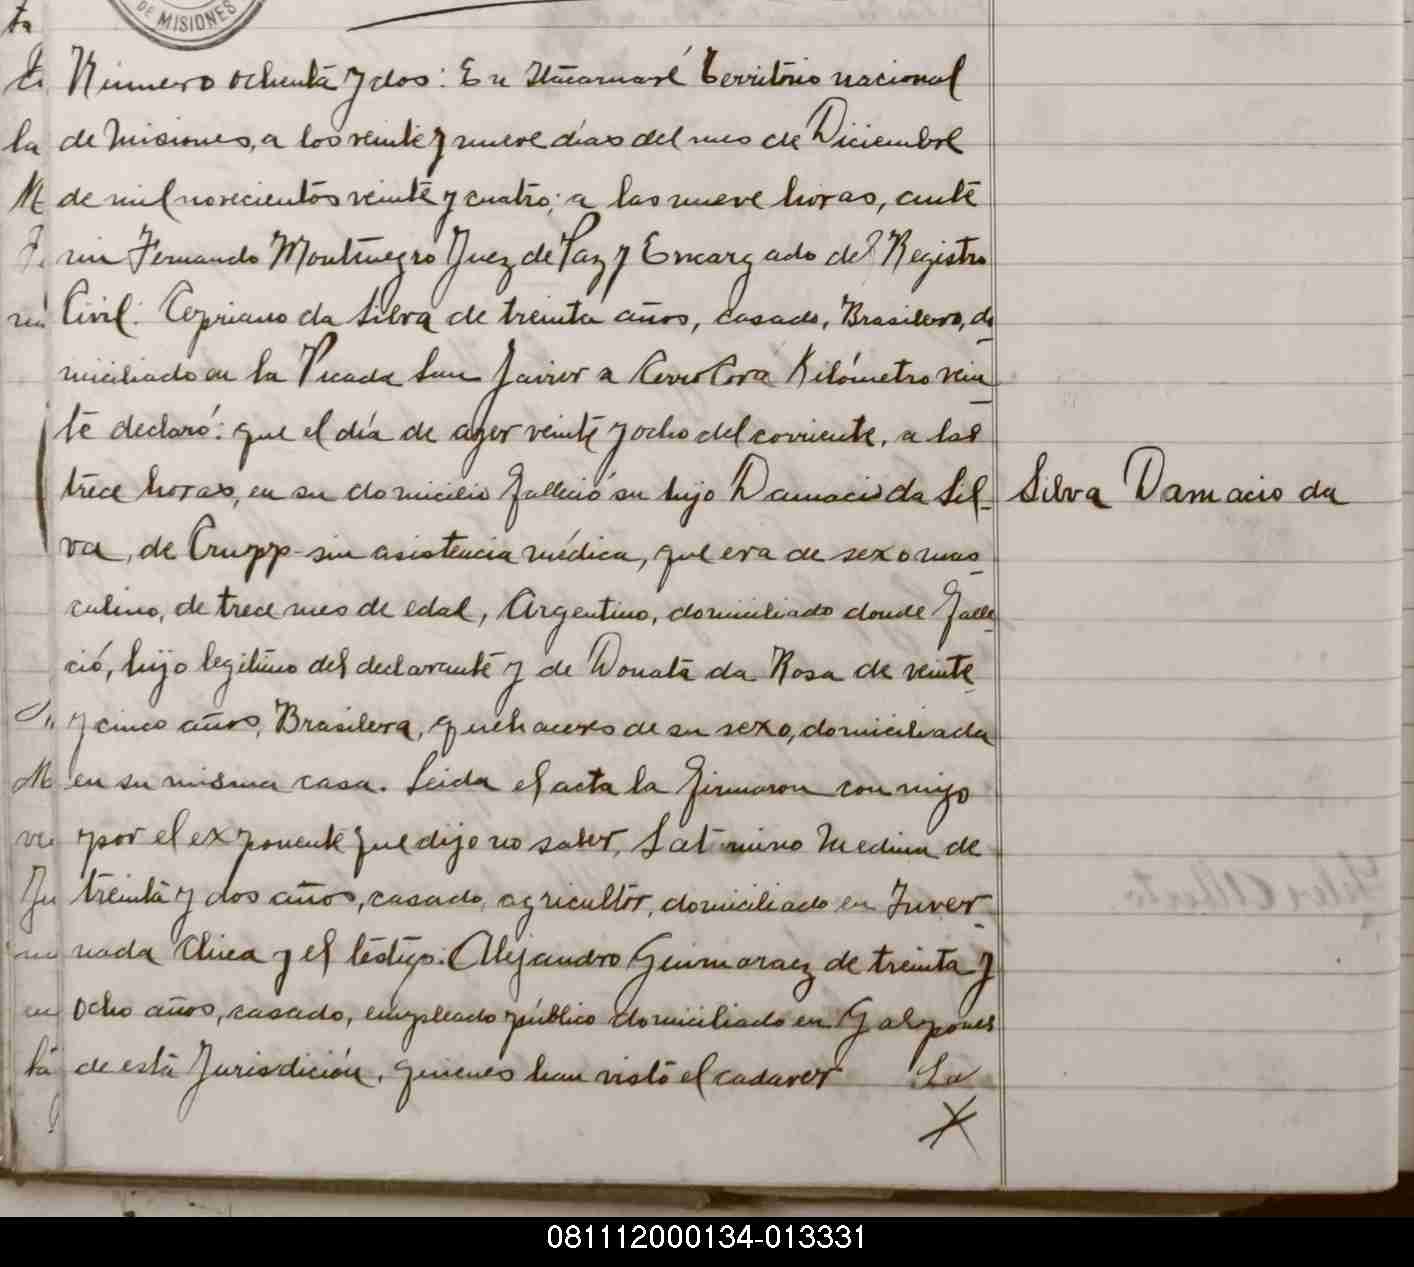 DE MISIONES
ta
Número ochenta y dos: En Itacaruaré Territorio nacional
la de Misiones, a los veinte y nueve días del mes de Diciembre
M de mil novecientos veinte y cuatro; a las nueve horas, ante
mi Fernando Montenegro Juez de Paz y Encargado del Registro
Civil: Cepriano da Silva de treinta años, casado, Brasilero, do
miciliado en la Picada San Javier a Cerro Cora Kilómetro vein
te declaró: que el día de ayer veinte y ocho del corriente, a las
trece horas, en su domicilio falleció su hijo Damacio da Sil- Silva Damacio da
va, de Crupp sin asistencia médica, que era de sexo mas
culino, de trece mes de edad, Argentino, domiciliado donde falle
ció, hijo legitimo del declarante y de Donata da Rosa de veinte
y cinco años, Brasilera, quehaceres de su sexo, domiciliada
M en su misma casa. Leida el acta la firmaron con migo
por el exponente que dijo no saber, Sat nino Medina de
Ju treinta y dos años, casado, agricultor, domiciliado en Inver
nada Chica y el testigo: Alejandro Guimaraez de treinta y
en ocho años, casado, empleado público domiciliado en Galpones
ta de esta Jurisdición, quienes han visto el cadaver La
081112000134-013331